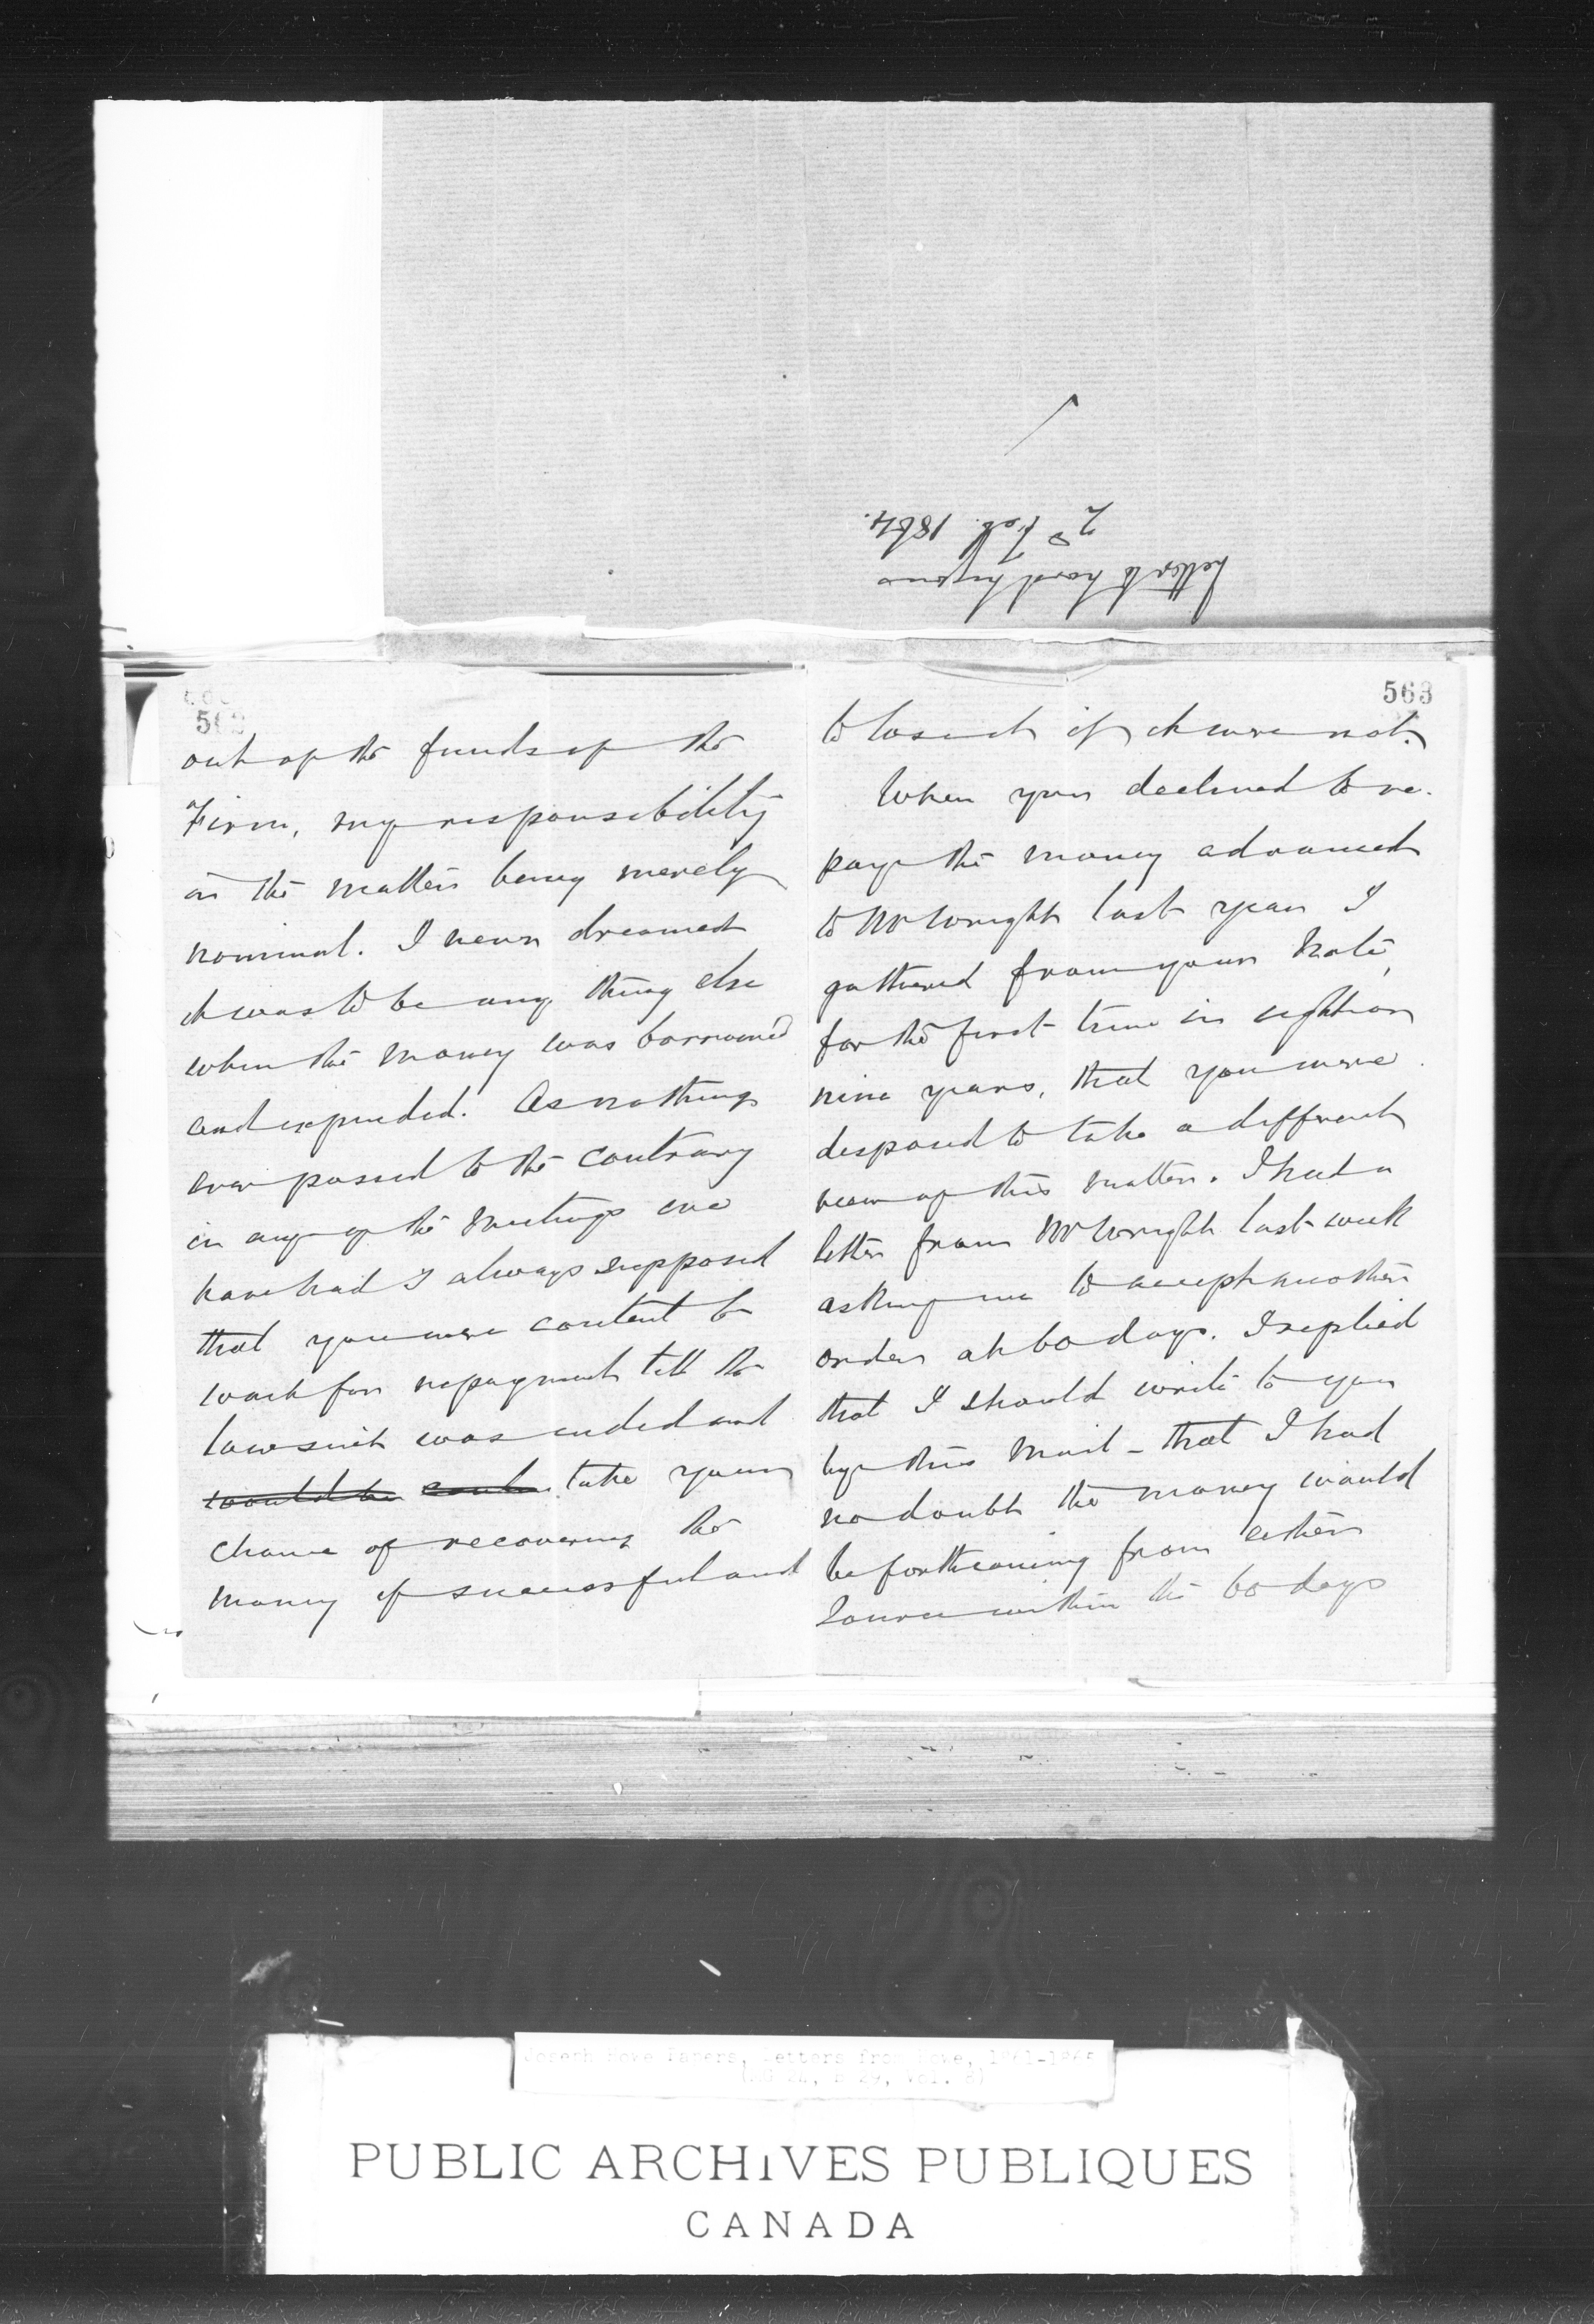 Letter to Lord Lyons
2d Feb. 1864.
562
out of the funds of the
Firm, my responsibility
in the matter being merely
nominal. I never dreamed
it was to be any thing else
when the money was borrowed
and expended. As nothing
ever passed to the contrary
in any of the meetings we
have had I always supposed
that you were content to
wait for repayment till the
lawsuit was ended and
would be take your
chance of recovering the
money if successful and
563
to lose it if it were not.
When you declined to re-
pay the money advanced
to Mr Wright last year I
gathered from your note,
for the first time in eight or
nine years, that you were
disposed to take a different
view of this matter. I had a
letter from Mr Wright last week
asking me to accept another
order at 60 days. I replied
that I should write to you
by this Mail - that I had
no doubt the money would
be forthcoming from either
source within the 60 days
Joseph Howe Papers, Letters from Howe, 1861-1865
(MG 24, B 29, Vol. 8)
PUBLIC ARCHIVES PUBLIQUES
CANADA